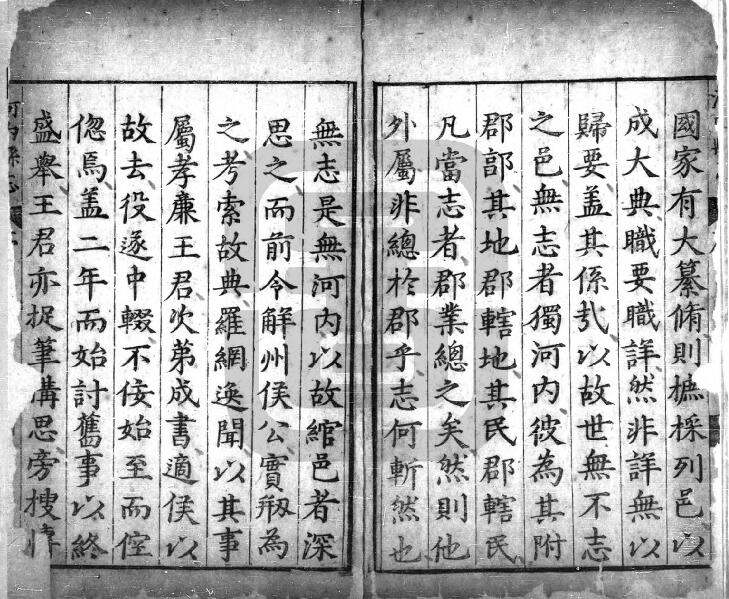 國家有大纂脩則摭採列邑以
成大典職要職詳然非詳無以
歸要盖其係㢤以故世無不志
之邑無志者獨河内彼為其附
郡郭其地郡轄地其民郡轄民
凡當志者郡業總之矣然則他
外屬非總於郡乎志何斬然也
無志是無河内以故綰邑者深
思之而前令解州侯公實剏為
之考索故典羅網逸聞以其事
屬孝廉王君次第成書適侯以
故去役遂中輟不佞始至而倥
偬焉盖二年而始討舊事以終
盛舉王君亦捉筆搆思旁搜
河内縣志